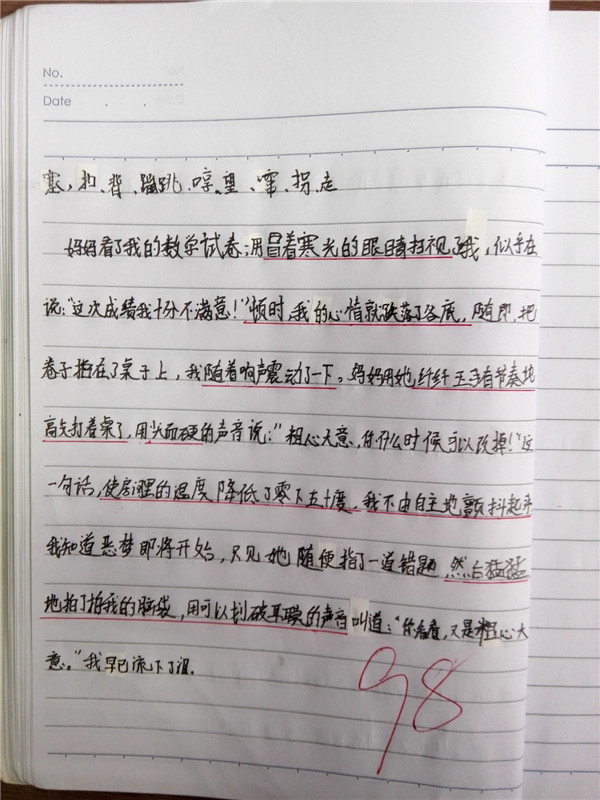 No.
Date . .
塞,扣、背、蹦跳、哼、望、噻、拐、走
妈妈看了我的数学试卷;用冒着寒光的眼睛扫视了我,似乎在
说:“这次成绩我十分不满意!”顿时,我的心情就跌落了谷底,随即,把
卷子拍在了桌子上,我随着响声震动了一下。妈妈用她纤纤玉手有节奏地
高欠打着桌了,用尖而硬的声音说:“粗心大意,你什么时候可以改掉!”这
一句话,使房理的温度降低了零下五十度,我不由自主地颤抖起来
我知道恶梦即将开始,只见她随便指了一道错题,然后猛猛
地拍了拍我的脑袋,用可以划破耳膜的声音叫道:“你看看,又是粗心大
意。”我早已流下了泪.
98